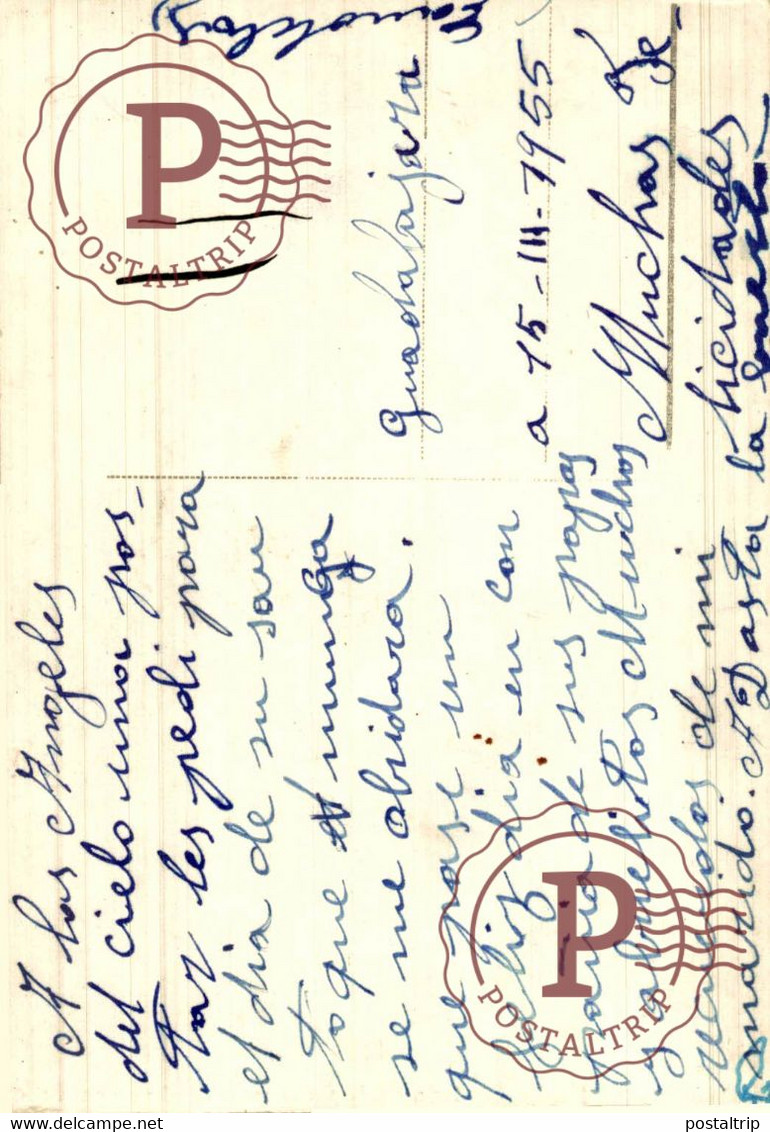 Guadalajara
a 15-III-1955
Muchas Fe-
licidades
A los Angeles
del cielo una pos-
tar les pedi para
el dia de su san
to que nunga
se me olvidara.
que pase un
feliz dia en con
pania de sus papas
y abuelitos Muchos
recuerdos de mi
marido. A Dasta la
vuelta-
P
POSTALTRIP
P
POSTALTRIP
postaltrip
postaltrip